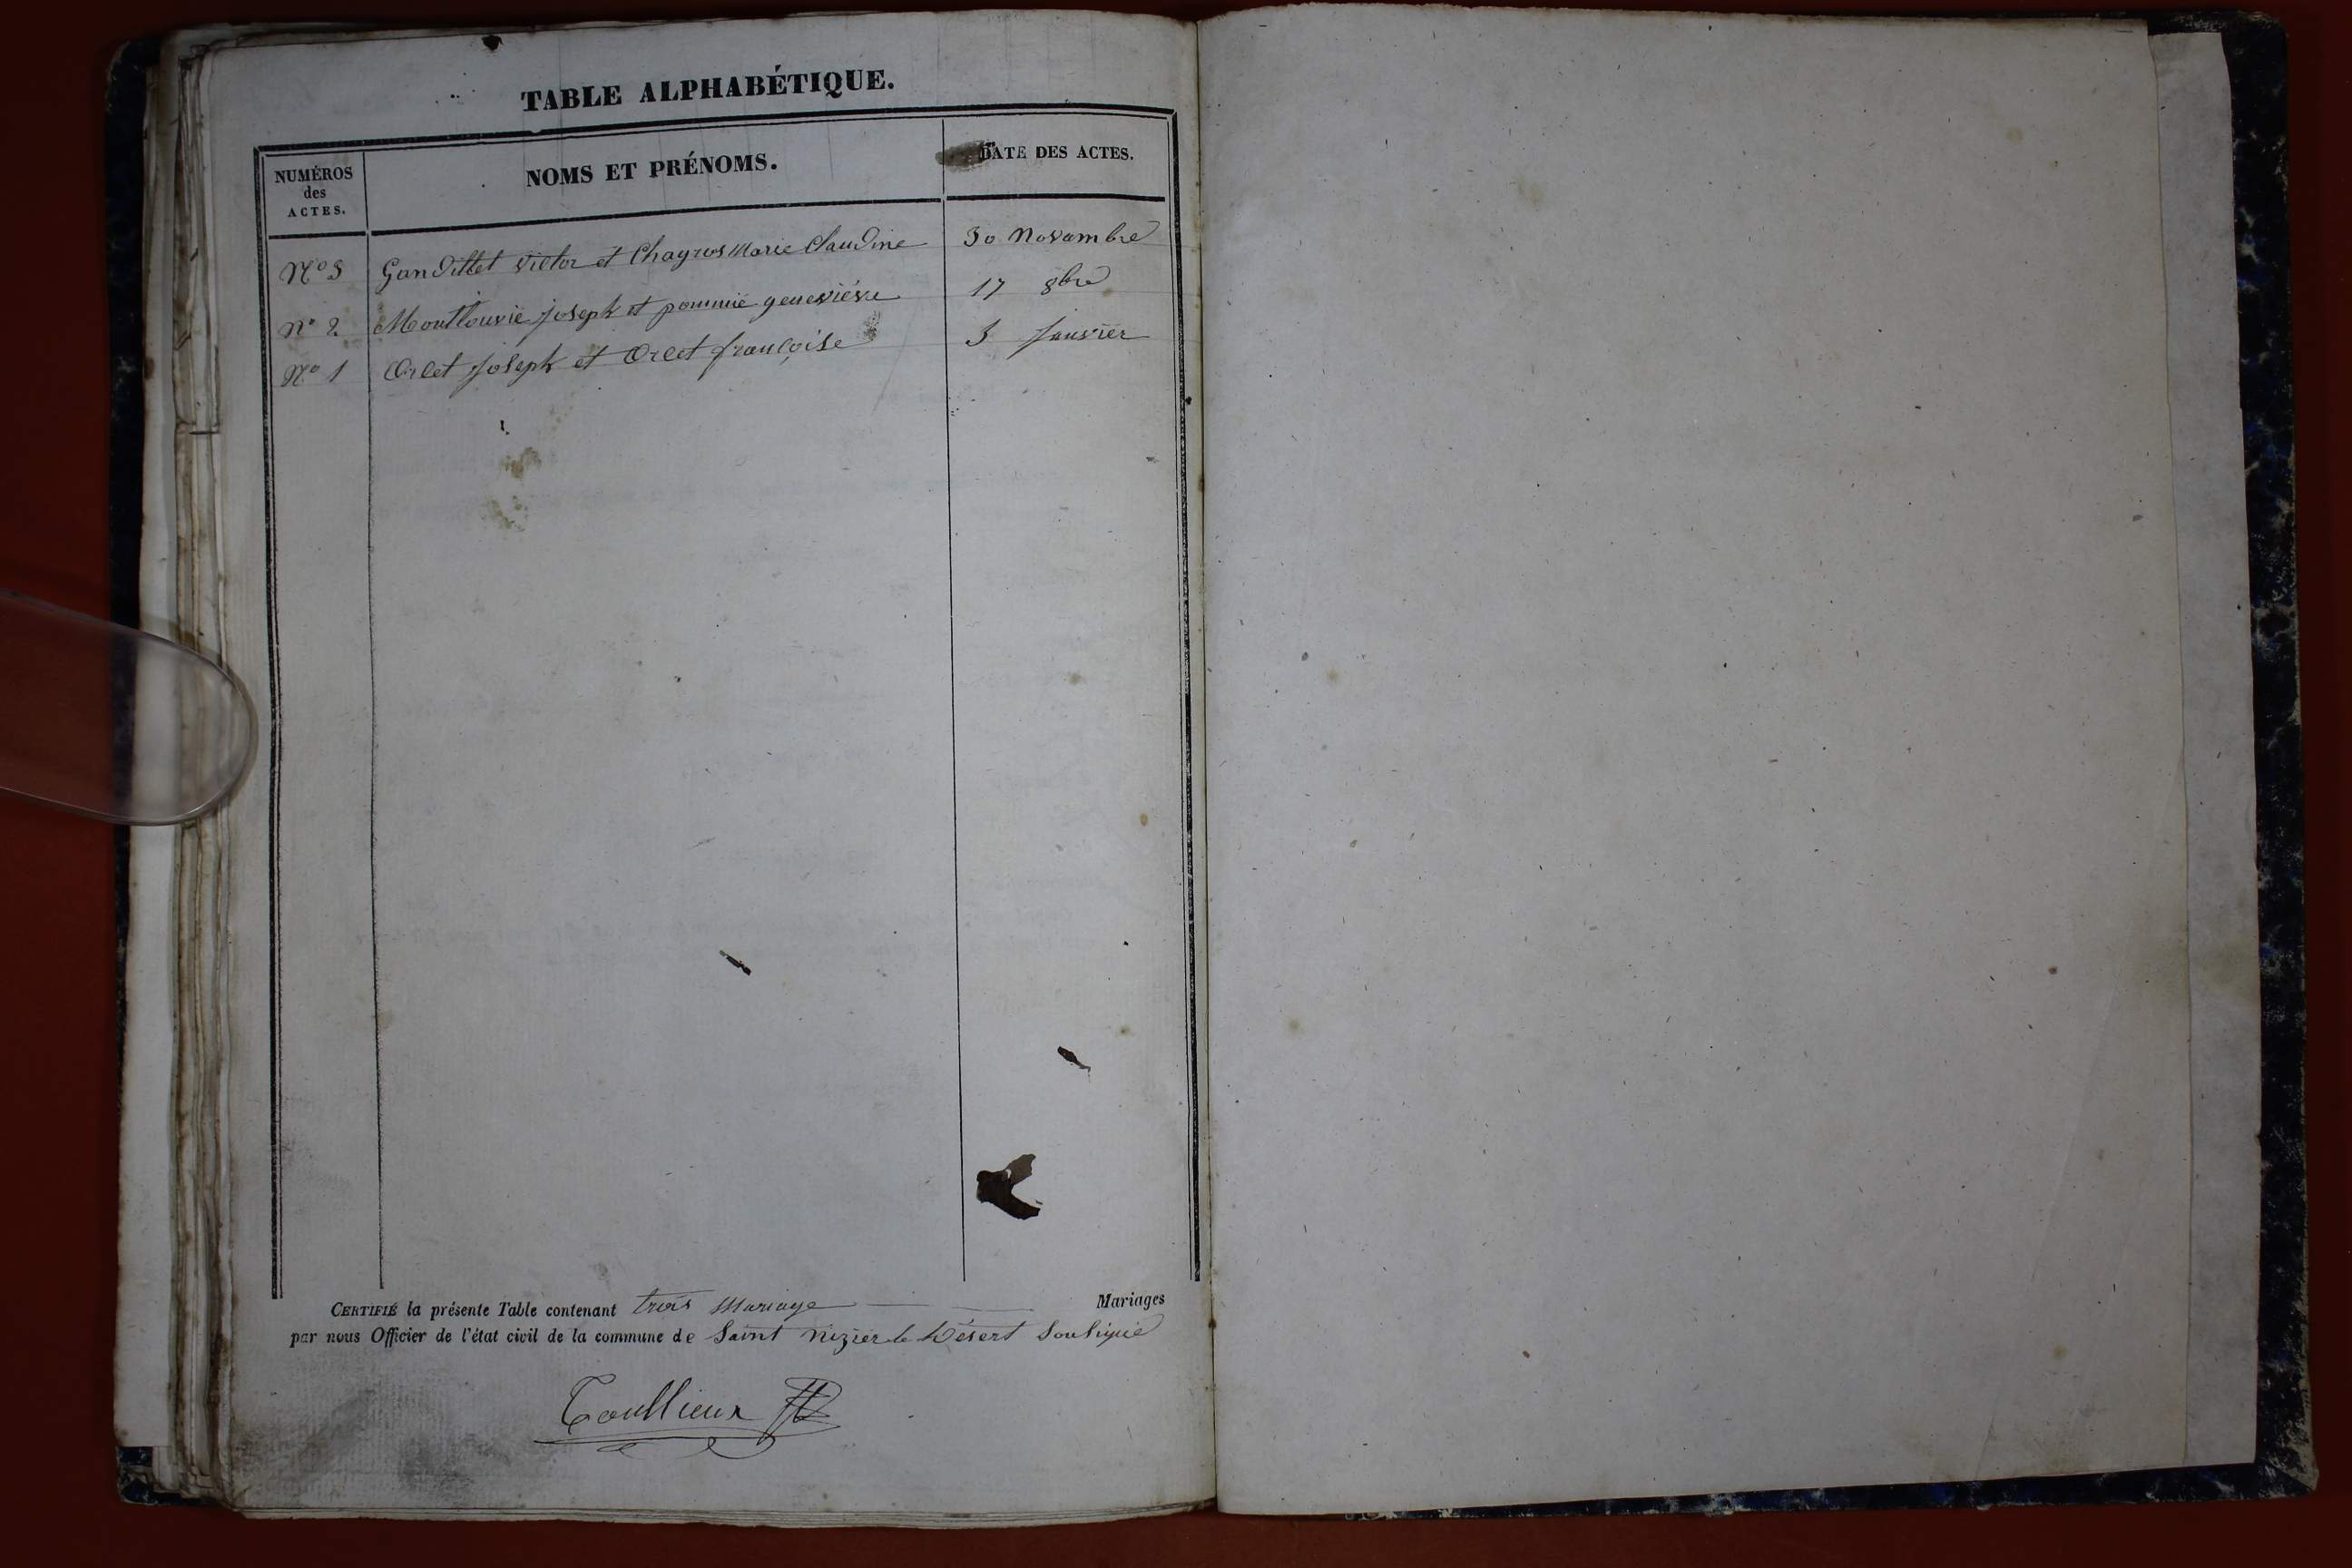 TABLE ALPHABÉTIQUE.
NUMÉROS des ACTES.
NOMS ET PRÉNOMS.
DATE DES ACTES.
Nº 3 Gandillet victor et Chagros Marie Claudine 30 Novembre
nº 2 Montlouvié joseph et pommié geneviève 17 8bre
Nº 1 Orcet joseph et Orcet françoise 3 janvier
CERTIFIÉ la présente Table contenant trois Mariage Mariages
par nous Officier de l'état civil de la commune de Saint nizier le Désert Soussigné